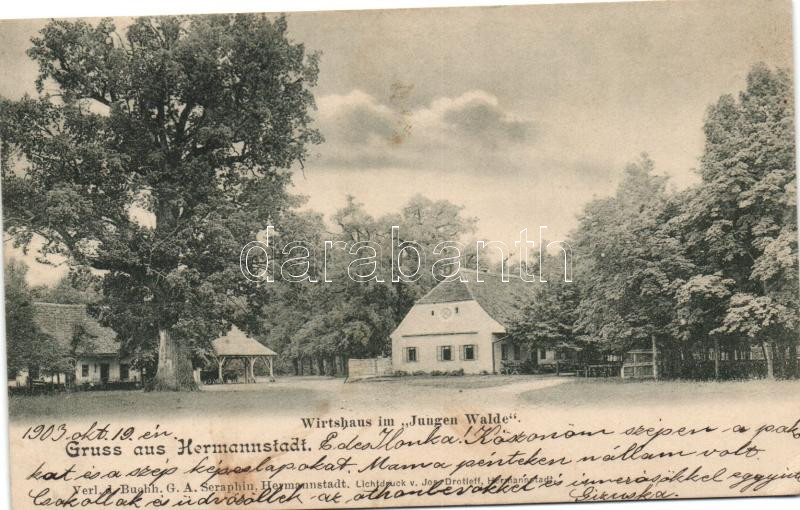 darabanth.com
Wirtshaus im „Jungen Walde“.
1903 okt. 19. én.
Gruss aus Hermannstadt.
Édes Ilonka. Köszönöm szépen a
kat és a szép képeslapokat. Mama pénteken nállam volt.
Verl. d. Buchh. G. A. Seraphin, Hermannstadt. Lichtdruck v. Jos. Drotleff, Hermannstadt.
Csókollak és üdvözöllek az otthonbevőkkel és
Giruska.